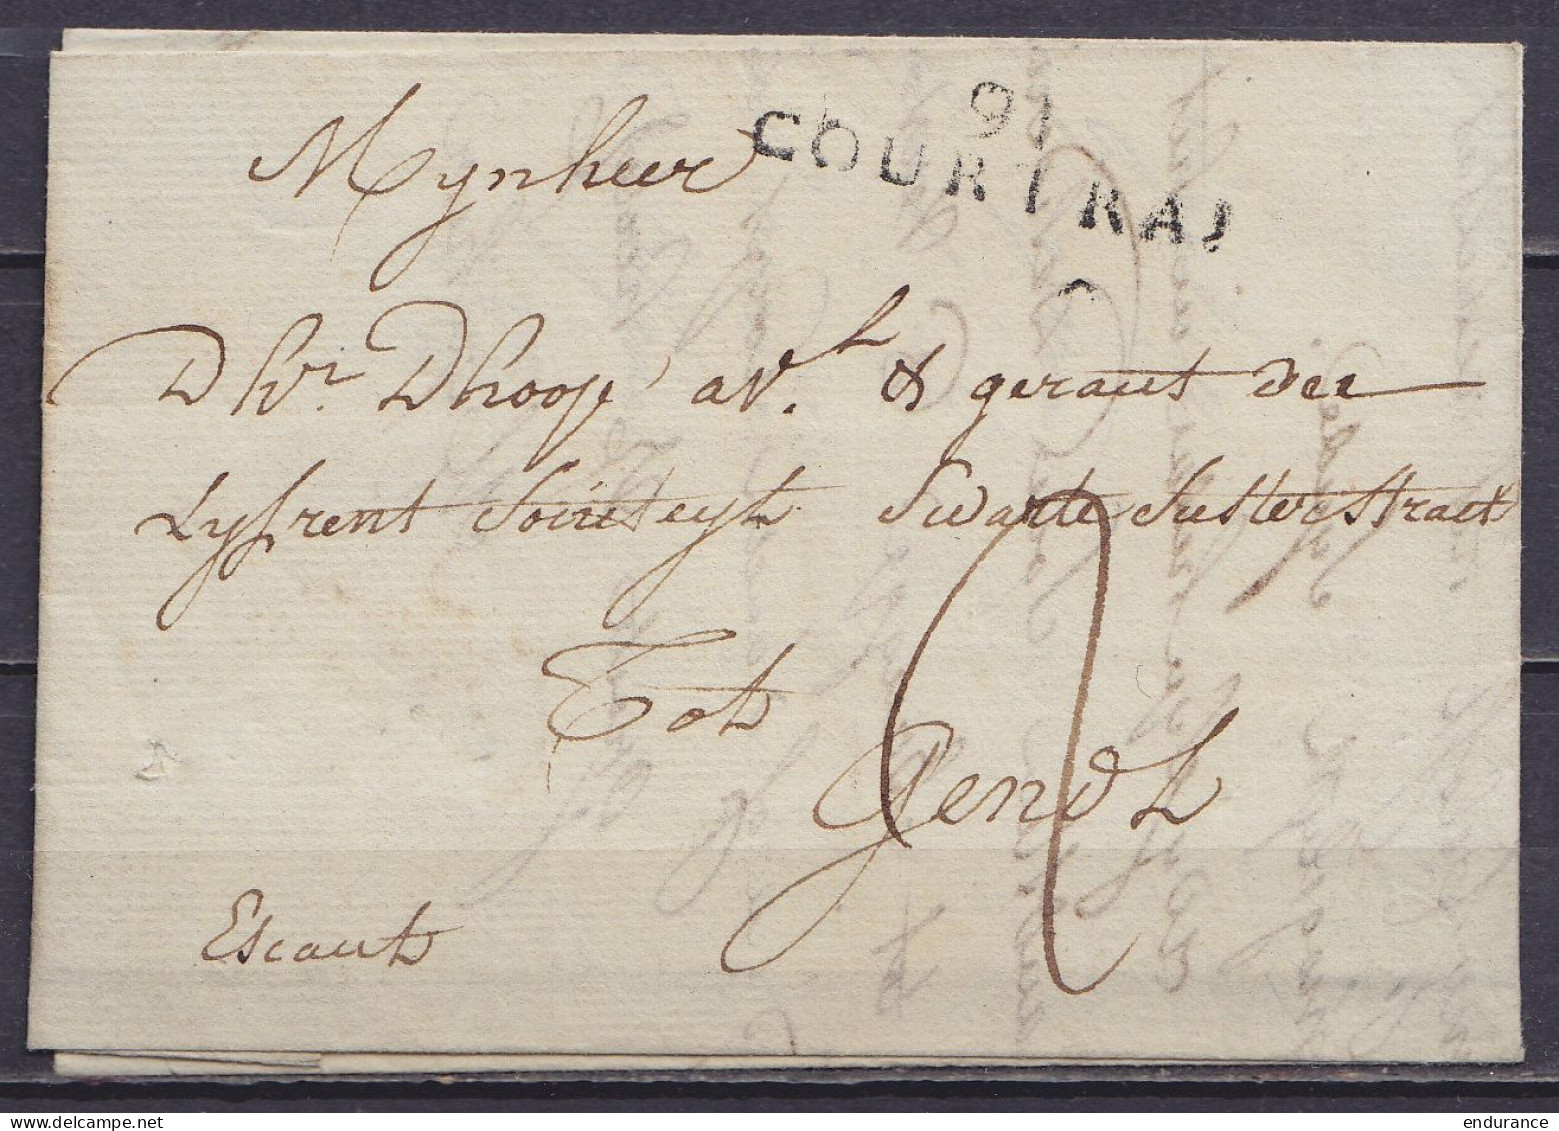 91
COURTRAI
Mynheer
Dhr. Dhoop av.t & gerant der
Lyfrent Societeyt Swarte Susterstraet
Tot
Gendt
Escaut
endurance